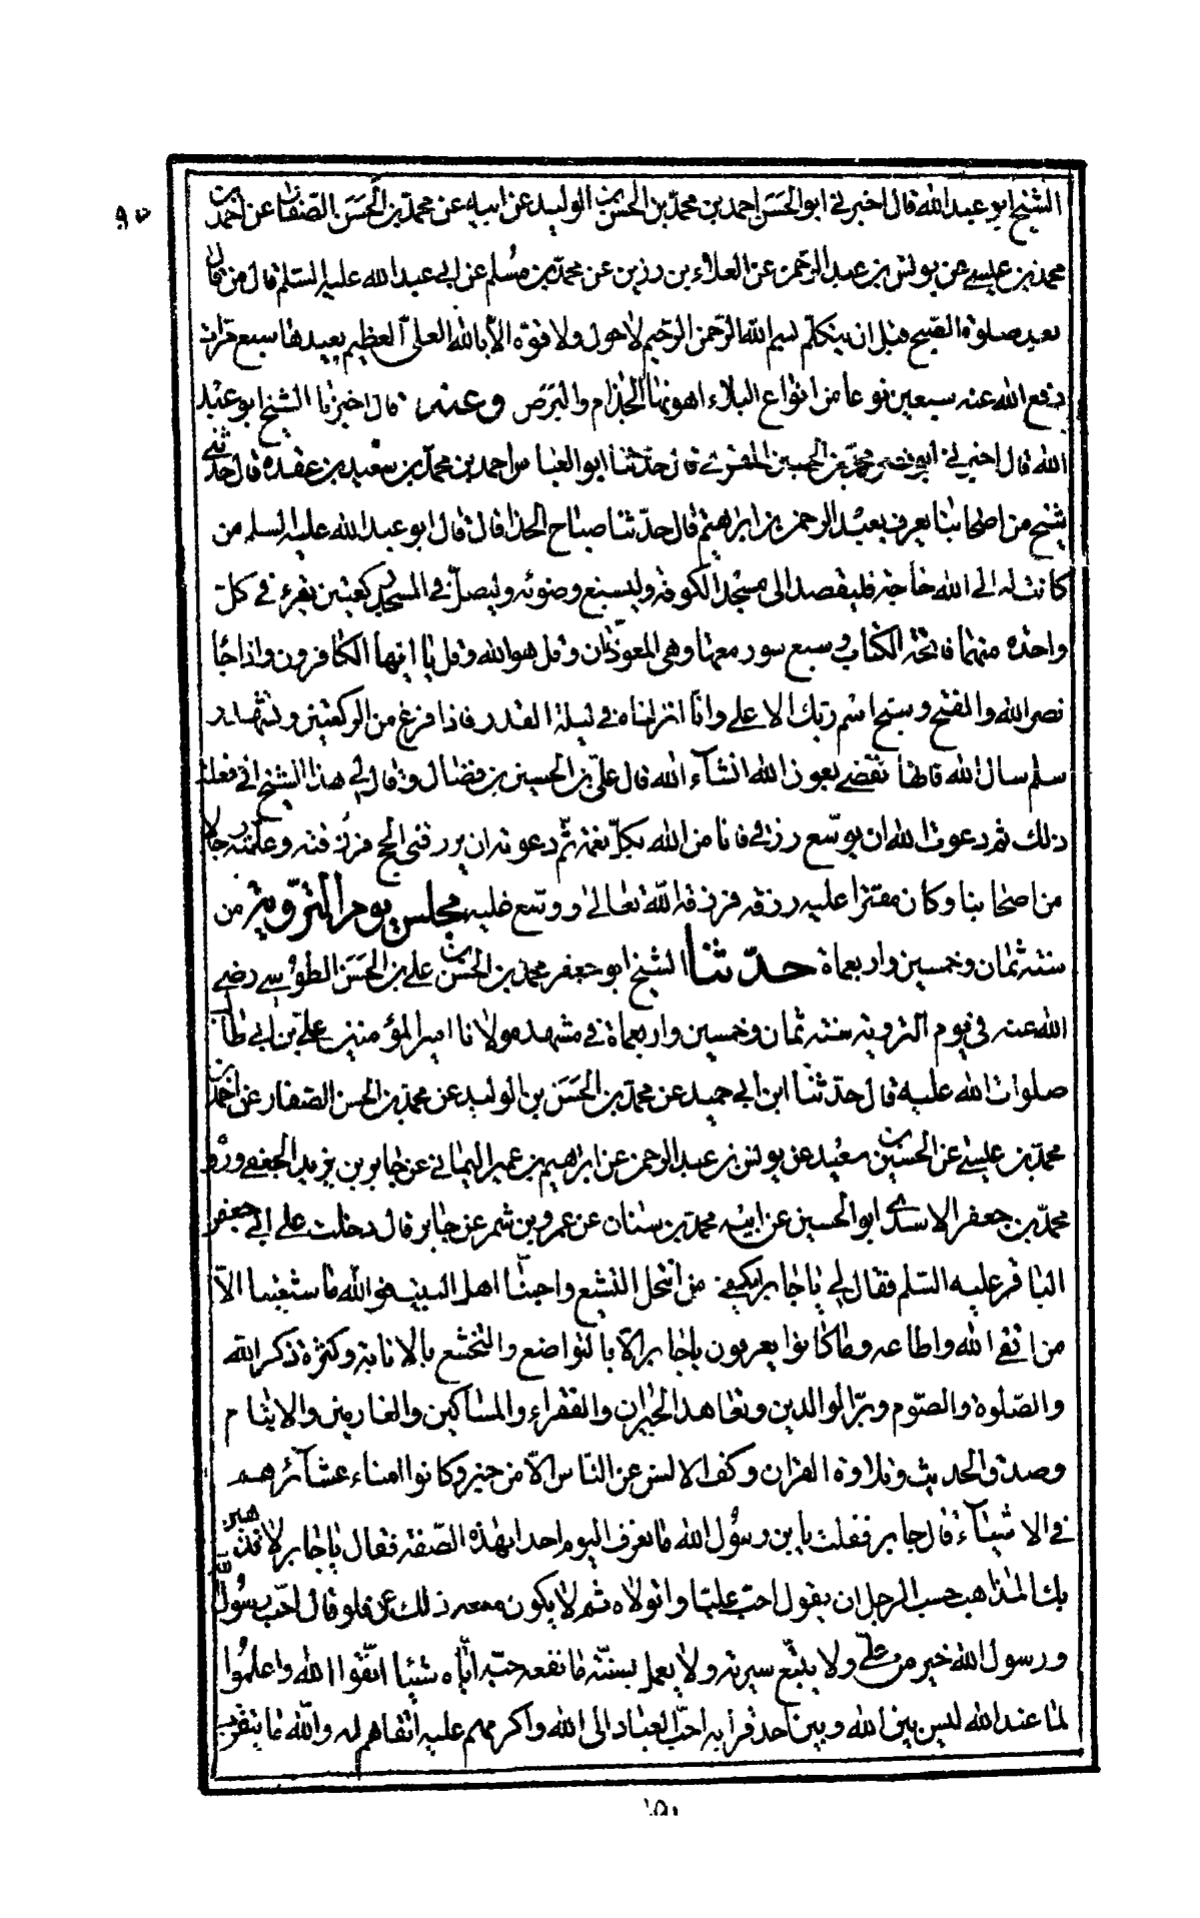 الشيخ ابو عبد الله قال اخبرني ابو الحسن احمد بن محمد بن الحسن بن الوليد عن ابيه عن محمد بن الحسن الصفار عن احمد بن
محمد بن عيسى عن يونس بن عبد الرحمن عن العلاء بن رزين عن محمد بن مسلم عن ابي عبد الله عليه السلم قال من قال
بعد صلوة الصبح قبل ان يتكلم بسم الله الرحمن الرحيم لا حول ولا قوة الا بالله العلي العظيم يعيدها سبع مرات
دفع الله عنه سبعين نوعا من انواع البلاء اهونها الجذام والبرص وعنه قال اخبرنا الشيخ ابو عبد
الله قال اخبرني ابو نصر محمد بن الحسين المقرئ قال حدثنا ابو العباس احمد بن محمد بن سعيد بن عقدة قال حدثني
شيخ من اصحابنا يعرف بعبد الرحمن بن ابراهيم قال حدثنا صباح الحذا قال قال ابو عبد الله عليه السلم من
كانت له الى الله حاجة فليقصد الى مسجد الكوفة وليسبغ وضوئه وليصل في المسجد ركعتين يقرء في كل
واحدة منهما فاتحة الكتاب وسبع سور معها وهي المعوذتان وقل هو الله وقل يا ايها الكافرون واذا جا
نصر الله والفتح وسبح اسم ربك الاعلى وانا انزلناه في ليلة القدر فاذا فرغ من الركعتين وتشهد و
سلم سال الله فانها تقضى بعون الله انشاء الله قال علي بن الحسين بن فضال وقال لي هذا الشيخ اني فعلت
ذلك ثم دعوت الله ان يوسع رزقي فانا من الله بكل نعمة ثم دعوته ان يرزقني الحج فرزقنه وعلمته رجلا
من اصحابنا وكان مقترا عليه رزقه فرزقه الله تعالى ووسع عليه مجلس يوم التروية من
سنة ثمان وخمسين واربعماة حدثنا الشيخ ابو جعفر محمد بن الحسن بن علي بن الحسن الطوسي رضي
الله عنه في يوم التروية سنة ثمان وخمسين واربعماة في مشهد مولانا امير المؤمنين علي بن ابي طالب
صلوات الله عليه قال حدثنا ابن ابي جيد عن محمد بن الحسن بن الوليد عن محمد بن الحسن الصفار عن احمد بن
محمد بن عيسى عن الحسين بن سعيد عن يونس بن عبد الرحمن عن ابراهيم بن عمير اليماني عن جابر بن يزيد الجعفي
محمد بن جعفر الاسدي ابو الحسين عن ابيه محمد بن سنان عن عمرو بن شمر عن جابر قال دخلت على ابي جعفر
الباقر عليه السلم فقال لي يا جابر ايكفي من انتحل التشيع واحبنا اهل البيت فو الله ما شيعتنا الا
من اتقى الله واطاعه وما كانوا يعرفون يا جابر الا بالتواضع والتخشع بالانابة وكثرة ذكر الله
والصلوة والصوم وبر الوالدين وتعاهد الجيران والفقراء والمساكين والغارمين والايتام
وصدق الحديث وتلاوة القران وكف الالسن عن الناس الا من خير وكانوا امناء عشائرهم
في الاشياء قال جابر فقلت يا بن رسول الله ما نعرف اليوم احدا بهذه الصفة فقال يا جابر لا تذهبن
بك المذاهب حسب الرجل ان يقول احب عليا واتولاه ثم لا يكون معه ذلك فلو قال احب رسول الله
ورسول الله خير من علي ولا يتبع سيرته ولا يعمل بسنته ما نفعه حبه اياه شيئا اتقوا الله واعلموا
لما عند الله ليس بين الله وبين احد قرابة احب العباد الى الله واكرمهم عليه اتقاهم له والله ما يتقرب
١٥١